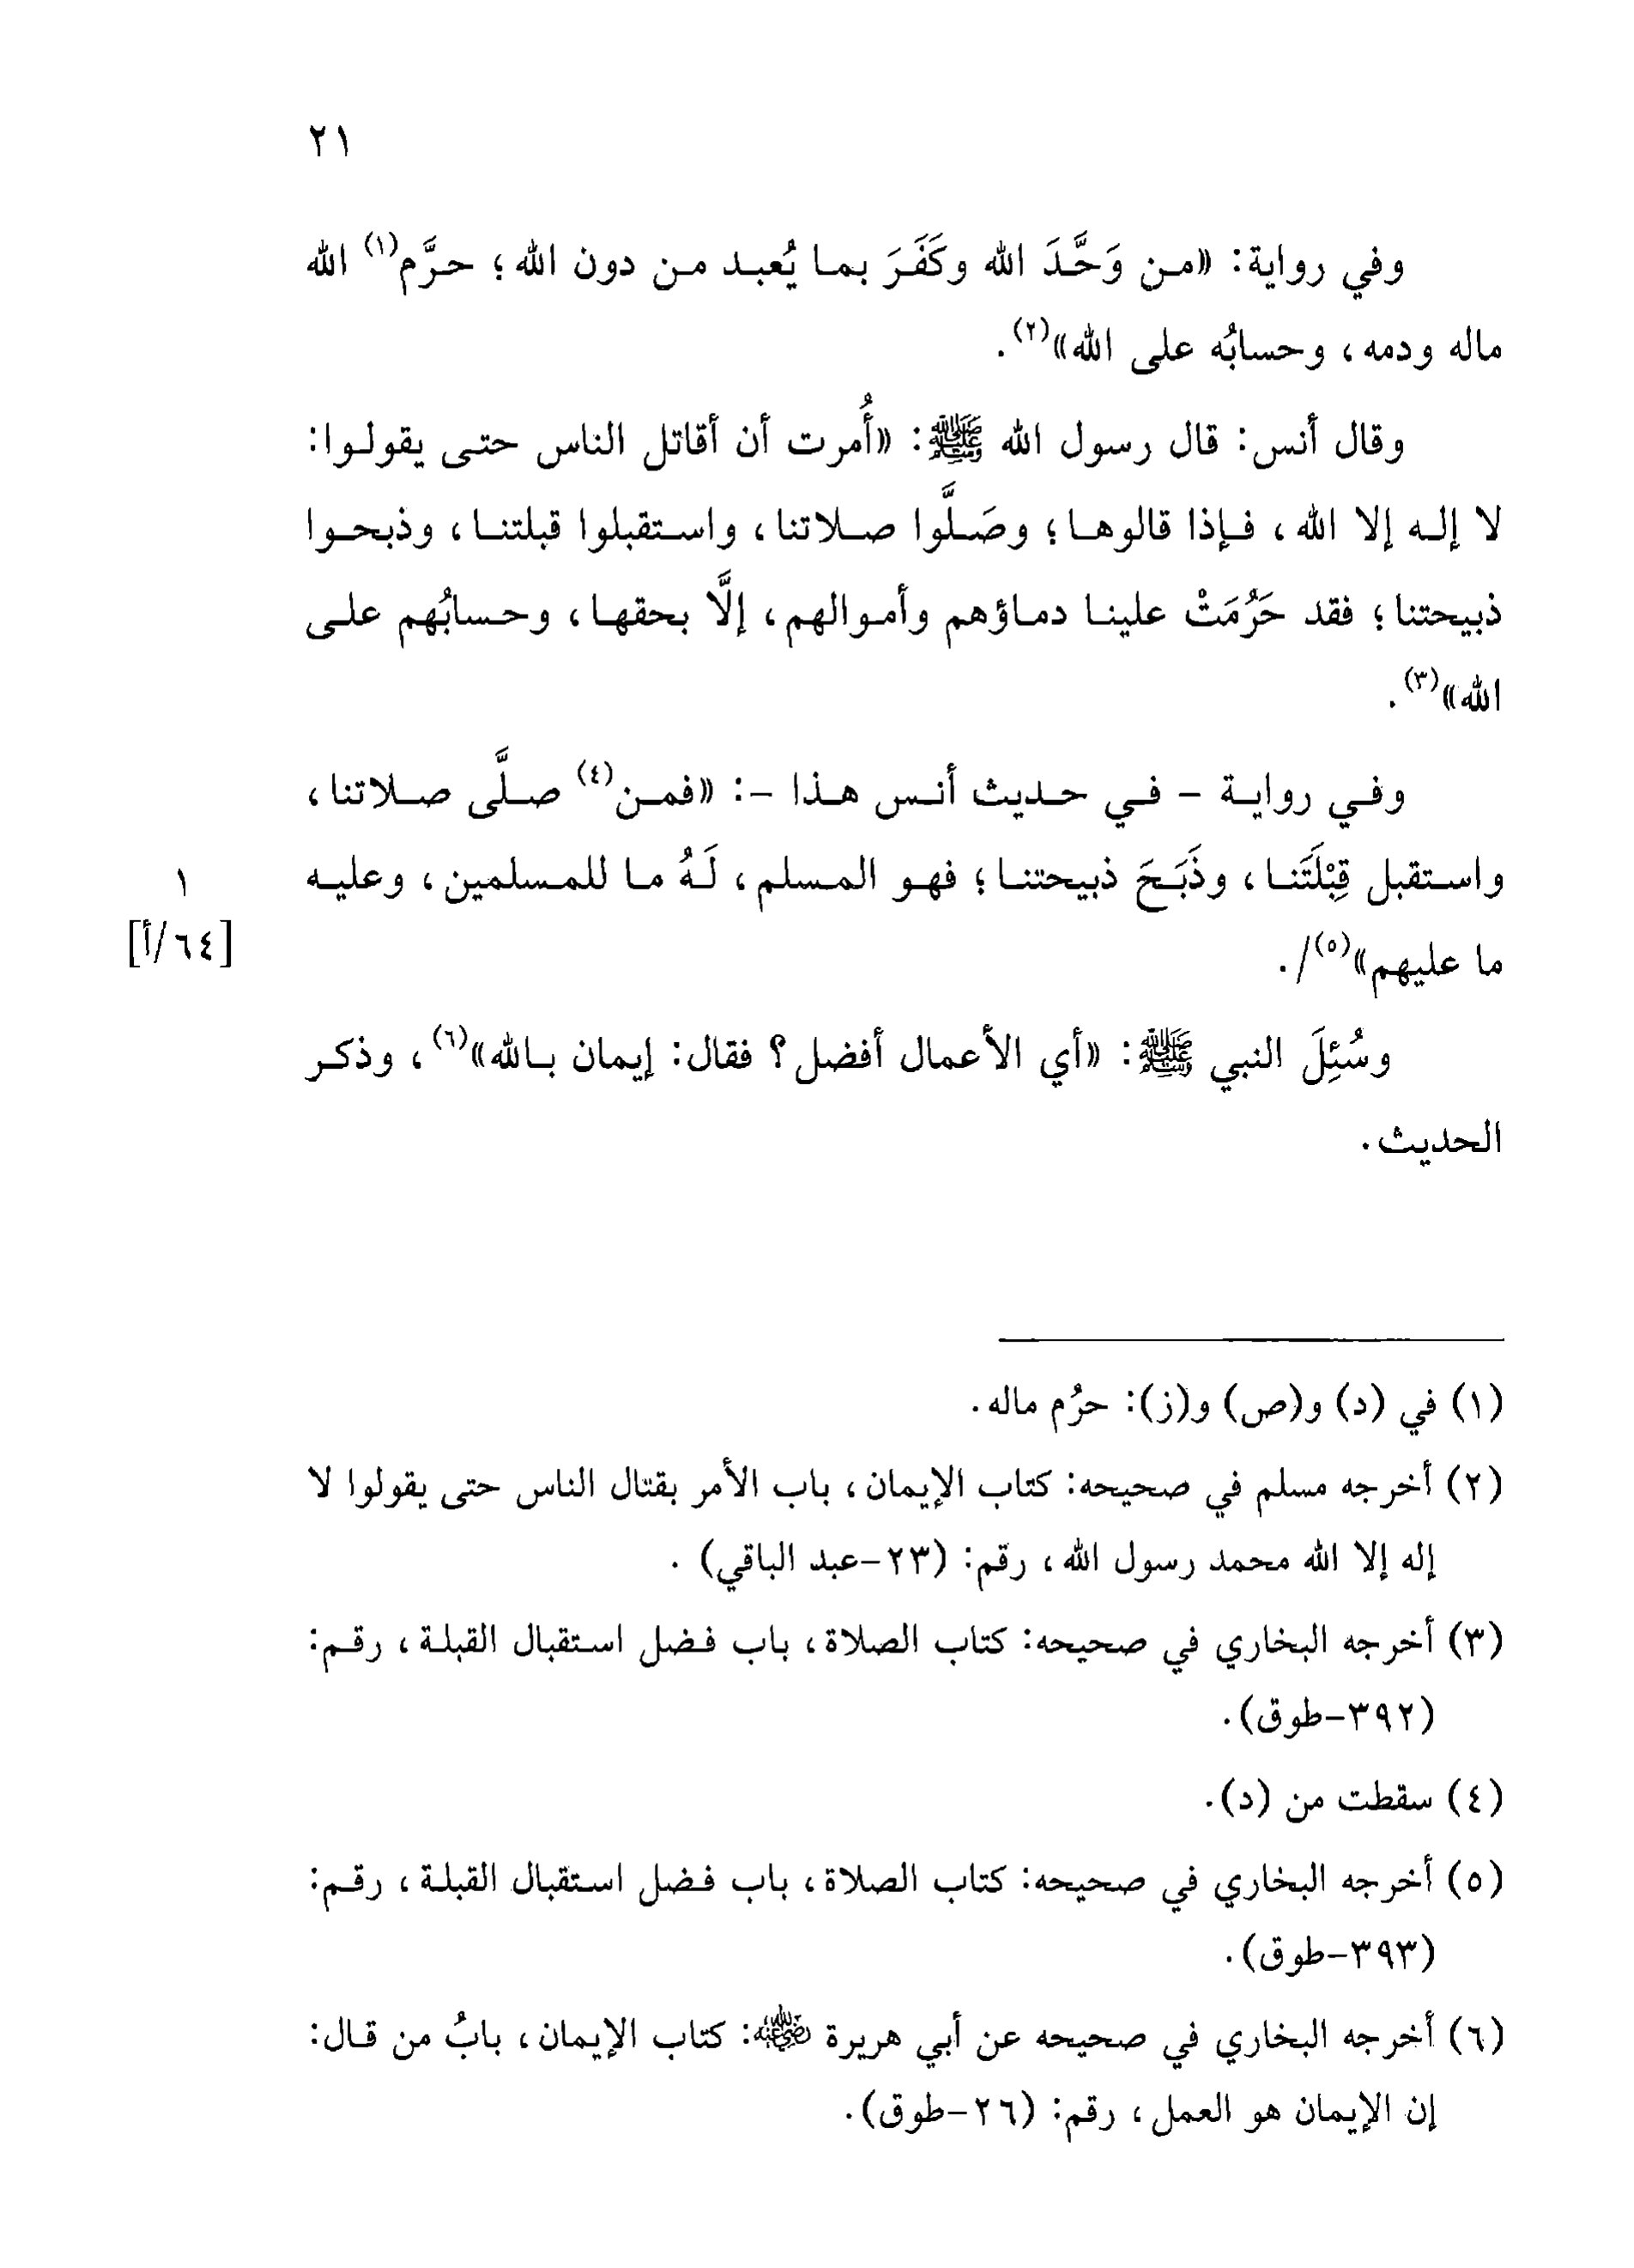 ٢١
وفي رواية: «من وَحَّدَ الله وكَفَرَ بما يُعبد من دون الله؛ حرَّم(١) الله
ماله ودمه، وحسابُه على الله»(٢).
وقال أنس: قال رسول الله ﷺ: «أُمرت أن أقاتل الناس حتى يقولوا:
لا إله إلا الله، فإذا قالوها؛ وصَلَّوا صلاتنا، واستقبلوا قبلتنا، وذبحوا
ذبيحتنا؛ فقد حَرُمَتْ علينا دماؤهم وأموالهم، إلَّا بحقها، وحسابُهم على
الله»(٣).
وفي رواية - في حديث أنس هذا -: «فمن(٤) صلَّى صلاتنا،
واستقبل قِبْلَتَنا، وذَبَحَ ذبيحتنا؛ فهو المسلم، لَهُ ما للمسلمين، وعليه
١
ما عليهم»(٥)/.
[٦٤/أ]
وسُئِلَ النبي ﷺ: «أي الأعمال أفضل؟ فقال: إيمان بالله»(٦)، وذكر
الحديث.
(١) في (د) و(ص) و(ز): حرُم ماله.
(٢) أخرجه مسلم في صحيحه: كتاب الإيمان، باب الأمر بقتال الناس حتى يقولوا لا
إله إلا الله محمد رسول الله، رقم: (٢٣-عبد الباقي).
(٣) أخرجه البخاري في صحيحه: كتاب الصلاة، باب فضل استقبال القبلة، رقم:
(٣٩٢-طوق).
(٤) سقطت من (د).
(٥) أخرجه البخاري في صحيحه: كتاب الصلاة، باب فضل استقبال القبلة، رقم:
(٣٩٣-طوق).
(٦) أخرجه البخاري في صحيحه عن أبي هريرة رضي الله عنه: كتاب الإيمان، بابُ من قال:
إن الإيمان هو العمل، رقم: (٢٦-طوق).